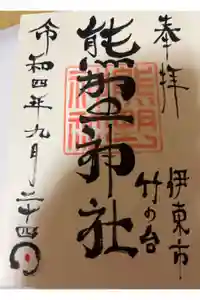 奉拝
伊東市
竹の台
熊野神社
令和四年九月二十四日